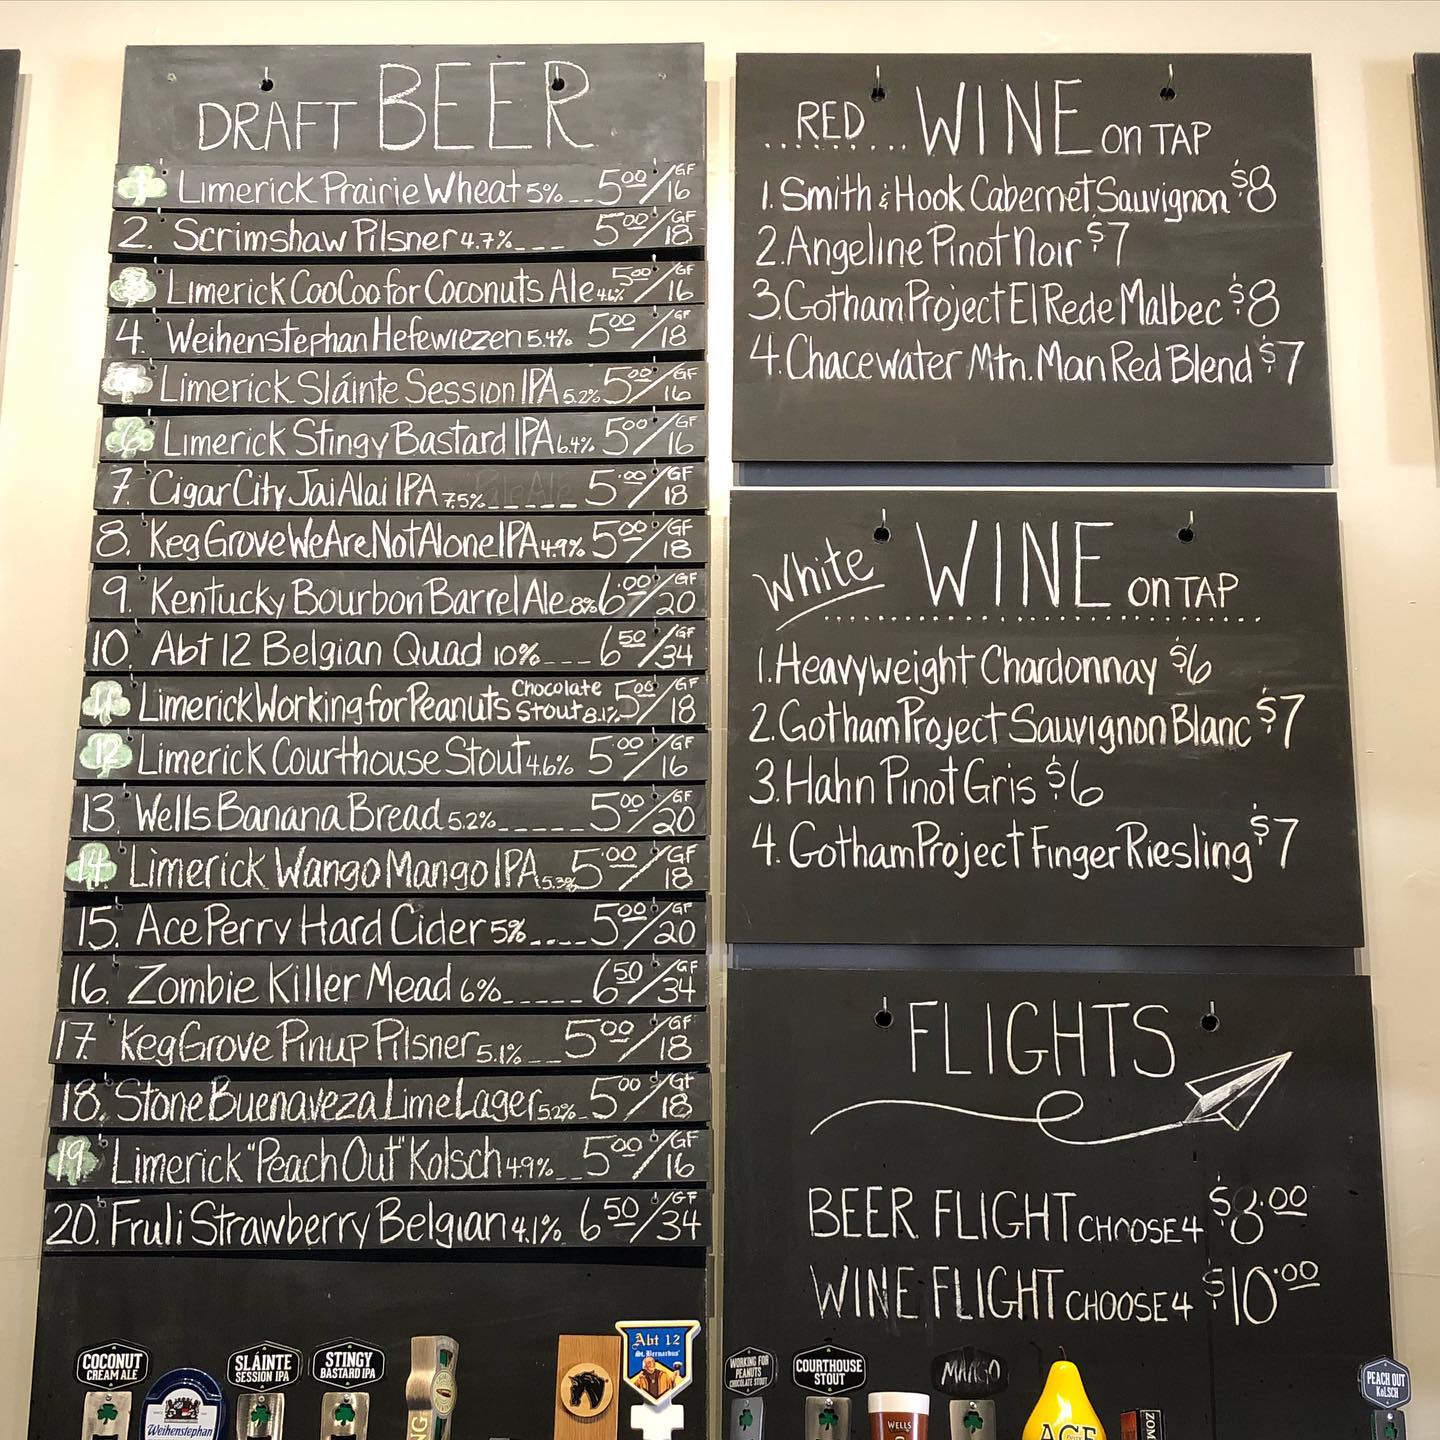 DRAFT BEER
1 Limerick Prairie Wheat 5% __ 5.00/GF 16
2. Scrimshaw Pilsner 4.7% ___ 5.00/GF 18
Limerick CooCoo for Coconuts Ale 4.6% 5.00/GF 16
4. Weihenstephan Hefewiezen 5.4% 5.00/GF 18
Limerick Sláinte Session IPA 5.2% 5.00/GF 16
6 Limerick Stingy Bastard IPA 6.4% 5.00/GF 16
7. Cigar City Jai Alai IPA 7.5% _____ 5.00/GF 18
8. Keg Grove We Are Not Alone IPA 4.9% 5.00/GF 18
9. Kentucky Bourbon Barrel Ale 8% 6.00/GF 20
10. Abt 12 Belgian Quad 10% ___ 6.50/GF 34
11 Limerick Working for Peanuts Chocolate Stout 8.1% 5.00/GF 18
12 Limerick Courthouse Stout 4.6% 5.00/GF 16
13. Wells Banana Bread 5.2% _____ 5.00/GF 20
14 Limerick Wango Mango IPA 5.3% 5.00/GF 18
15. Ace Perry Hard Cider 5% ____ 5.00/GF 20
16. Zombie Killer Mead 6% _____ 6.50/GF 34
17. Keg Grove Pinup Pilsner 5.1% __ 5.00/GF 18
18. Stone Buenaveza Lime Lager 5.2% _ 5.00/GF 18
19 Limerick "Peach Out" Kolsch 4.9% __ 5.00/GF 16
20. Fruli Strawberry Belgian 4.1% 6.50/GF 34
RED WINE on TAP
1. Smith & Hook Cabernet Sauvignon $8
2. Angeline Pinot Noir $7
3. Gotham Project El Rede Malbec $8
4. Chacewater Mtn. Man Red Blend $7
White WINE on TAP
1. Heavyweight Chardonnay $6
2. Gotham Project Sauvignon Blanc $7
3. Hahn Pinot Gris $6
4. Gotham Project Finger Riesling $7
FLIGHTS
BEER FLIGHT CHOOSE 4 $8.00
WINE FLIGHT CHOOSE 4 $10.00
COCONUT
CREAM ALE
Weihenstephan
SLÁINTE
SESSION IPA
STINGY
BASTARD IPA
Abt 12
St. Bernardus
WORKING FOR
PEANUTS
CHOCOLATE STOUT
COURTHOUSE
STOUT
WELLS
MANGO
ACE
ZOM
PEACH OUT
KöLSCH